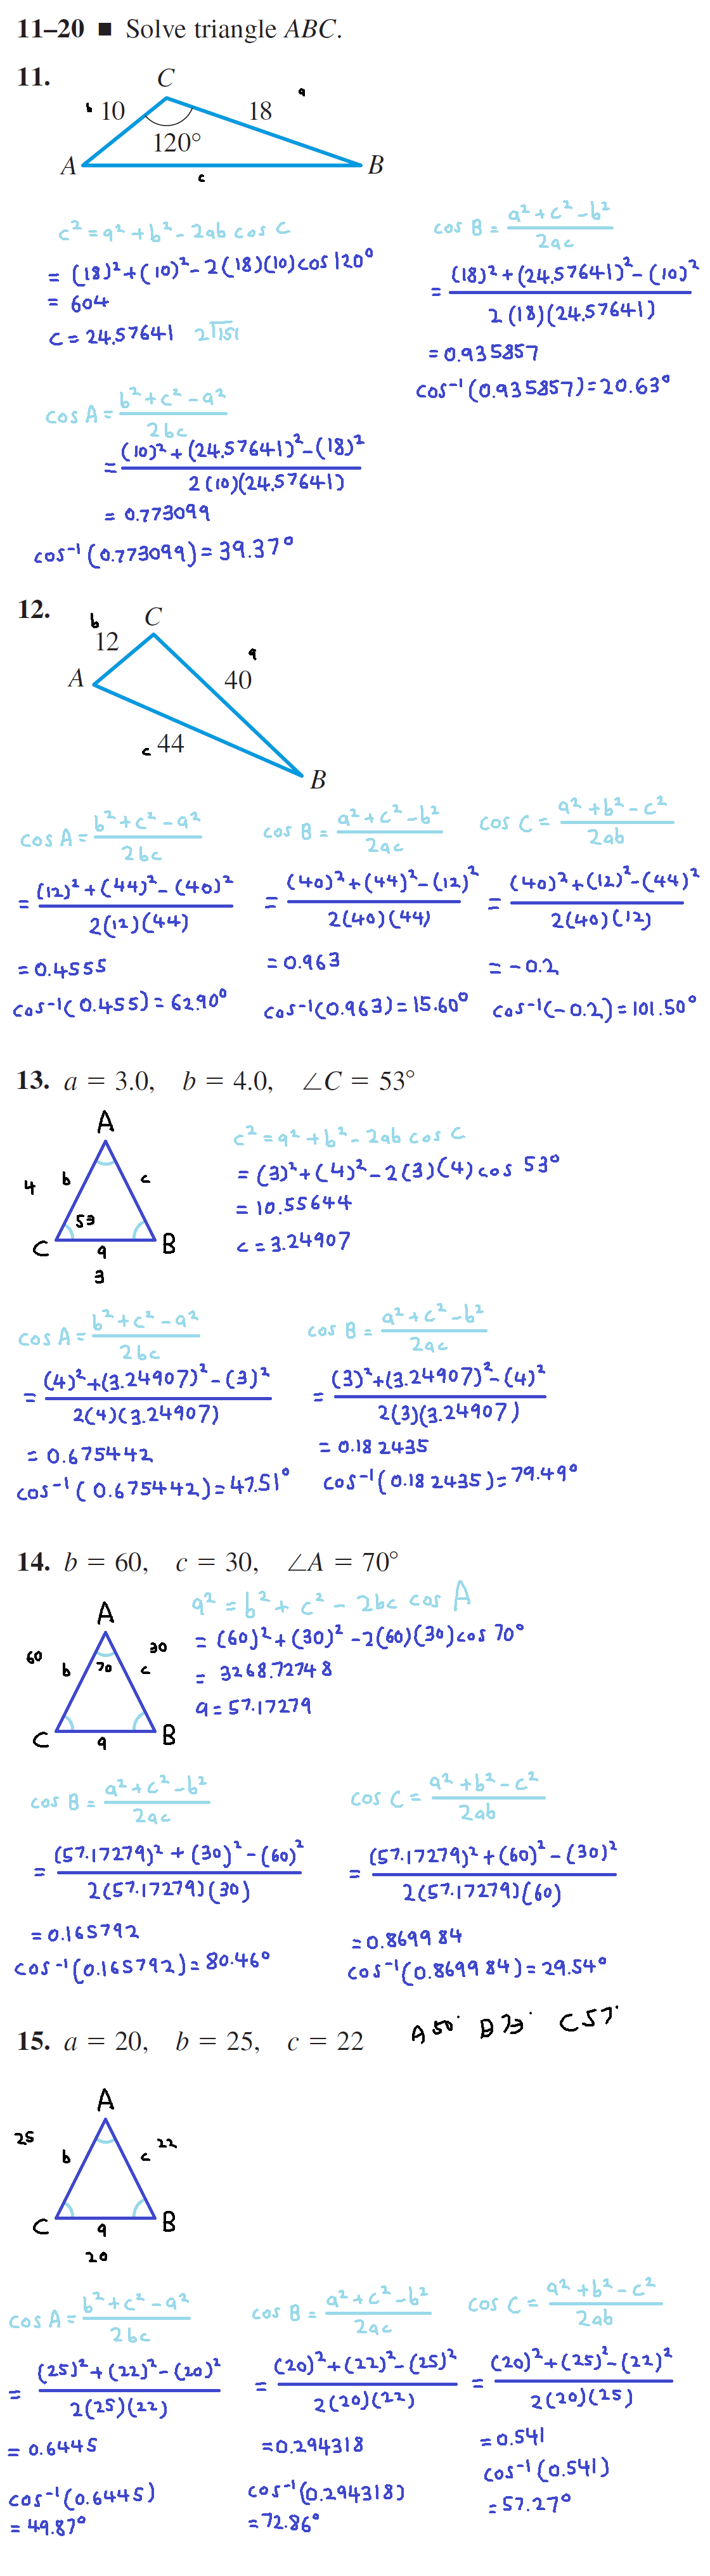 11–20 ■ Solve triangle ABC.
11.
C
b 10
18
a
120°
A
B
c
c² = a² + b² - 2ab cos C
= (18)² + (10)² - 2(18)(10)cos 120°
= 604
c = 24.57641 2√151
cos B = (a² + c² - b²)/2ac
= ((18)² + (24.57641)² - (10)²)/2(18)(24.57641)
= 0.935857
cos⁻¹(0.935857) = 20.63°
cos A = (b² + c² - a²)/2bc
= ((10)² + (24.57641)² - (18)²)/2(10)(24.57641)
= 0.773099
cos⁻¹(0.773099) = 39.37°
12.
b
C
12
a
A
40
c 44
B
cos A = (b² + c² - a²)/2bc
= ((12)² + (44)² - (40)²)/2(12)(44)
= 0.4555
cos⁻¹(0.455) = 62.90°
cos B = (a² + c² - b²)/2ac
= ((40)² + (44)² - (12)²)/2(40)(44)
= 0.963
cos⁻¹(0.963) = 15.60°
cos C = (a² + b² - c²)/2ab
= ((40)² + (12)² - (44)²)/2(40)(12)
= -0.2
cos⁻¹(-0.2) = 101.50°
13. a = 3.0, b = 4.0, ∠C = 53°
A
4 b c
53
C a B
3
c² = a² + b² - 2ab cos C
= (3)² + (4)² - 2(3)(4)cos 53°
= 10.55644
c = 3.24907
cos A = (b² + c² - a²)/2bc
= ((4)² + (3.24907)² - (3)²)/2(4)(3.24907)
= 0.675442
cos⁻¹(0.675442) = 47.51°
cos B = (a² + c² - b²)/2ac
= ((3)² + (3.24907)² - (4)²)/2(3)(3.24907)
= 0.182435
cos⁻¹(0.182435) = 79.49°
14. b = 60, c = 30, ∠A = 70°
A
60 30
b 70 c
C a B
a² = b² + c² - 2bc cos A
= (60)² + (30)² - 2(60)(30)cos 70°
= 3268.72748
a = 57.17279
cos B = (a² + c² - b²)/2ac
= ((57.17279)² + (30)² - (60)²)/2(57.17279)(30)
= 0.165792
cos⁻¹(0.165792) = 80.46°
cos C = (a² + b² - c²)/2ab
= ((57.17279)² + (60)² - (30)²)/2(57.17279)(60)
= 0.869984
cos⁻¹(0.869984) = 29.54°
15. a = 20, b = 25, c = 22
A 50° B 73° C 57°
A
25 22
b c
C a B
20
cos A = (b² + c² - a²)/2bc
= ((25)² + (22)² - (20)²)/2(25)(22)
= 0.6445
cos⁻¹(0.6445)
= 49.87°
cos B = (a² + c² - b²)/2ac
= ((20)² + (22)² - (25)²)/2(20)(22)
= 0.294318
cos⁻¹(0.294318)
= 72.86°
cos C = (a² + b² - c²)/2ab
= ((20)² + (25)² - (22)²)/2(20)(25)
= 0.541
cos⁻¹(0.541)
= 57.27°